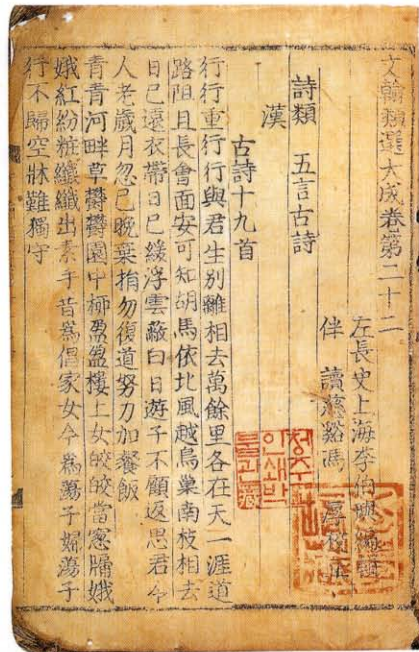 文翰類選大成卷第二十二
左長史上海李伯璵編輯
伴讀慈谿馮厚校正
詩類 五言古詩
漢
古詩十九首
行行重行行與君生別離相去萬餘里各在天一涯道
路阻且長會面安可知胡馬依北風越鳥巢南枝相去
日已遠衣帶日已緩浮雲蔽白日遊子不顧返思君令
人老歲月忽已晚棄捐勿復道努力加餐飯
青青河畔草鬱鬱園中柳盈盈樓上女皎皎當窓牖娥
娥紅紛粧纖纖出素手昔爲倡家女今爲蕩子婦蕩子
行不歸空牀難獨守
청주
인쇄박
물관